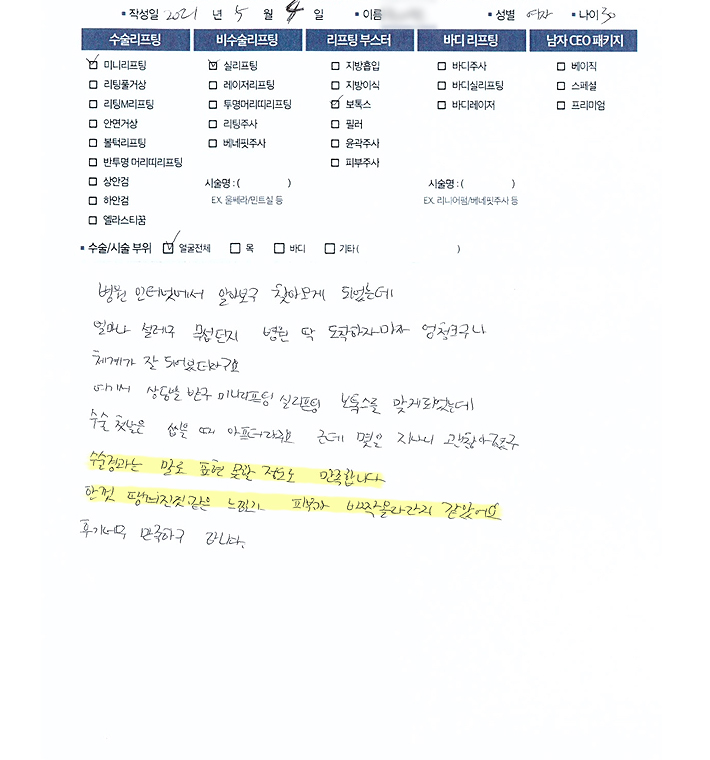 작성일 2021 년 5 월 4 일 이름 성별 여자 나이 30
수술리프팅 비수술리프팅 리프팅 부스터 바디 리프팅 남자 CEO 패키지
미니리프팅 실리프팅 지방흡입 바디주사 베이직
리팅풀거상 레이저리프팅 지방이식 바디실리프팅 스페셜
리팅M리프팅 투명머리띠리프팅 보톡스 바디레이저 프리미엄
안면거상 리팅주사 필러
볼턱리프팅 베네핏주사 윤곽주사
반투명 머리띠리프팅 피부주사
상안검 시술명 : ( ) 시술명 : ( )
하안검 EX. 울쎄라/민트실 등 EX. 리니어펌/베네핏주사 등
엘라스티꿈
수술/시술 부위 얼굴전체 목 바디 기타 ( )
병원 인터넷에서 알아보구 찾아오게 되었는데
얼마나 설레구 무섭던지 병원 딱 도착하자마자 엄청크구나
체계가 잘 되어있더라구요
상담을 받구 미니리프팅 실리프팅 보톡스를 맞게되었는데
수술 첫날은 씹을 때 아프더라구요 근데 몇일 지나니 괜찮아졌구
수술결과는 말로 표현 못할 정도로 만족합니다
한껏 땡겨진것같은 느낌? 피부가 바짝올라간거 같았어요
후기너무 만족하구 갑니다.